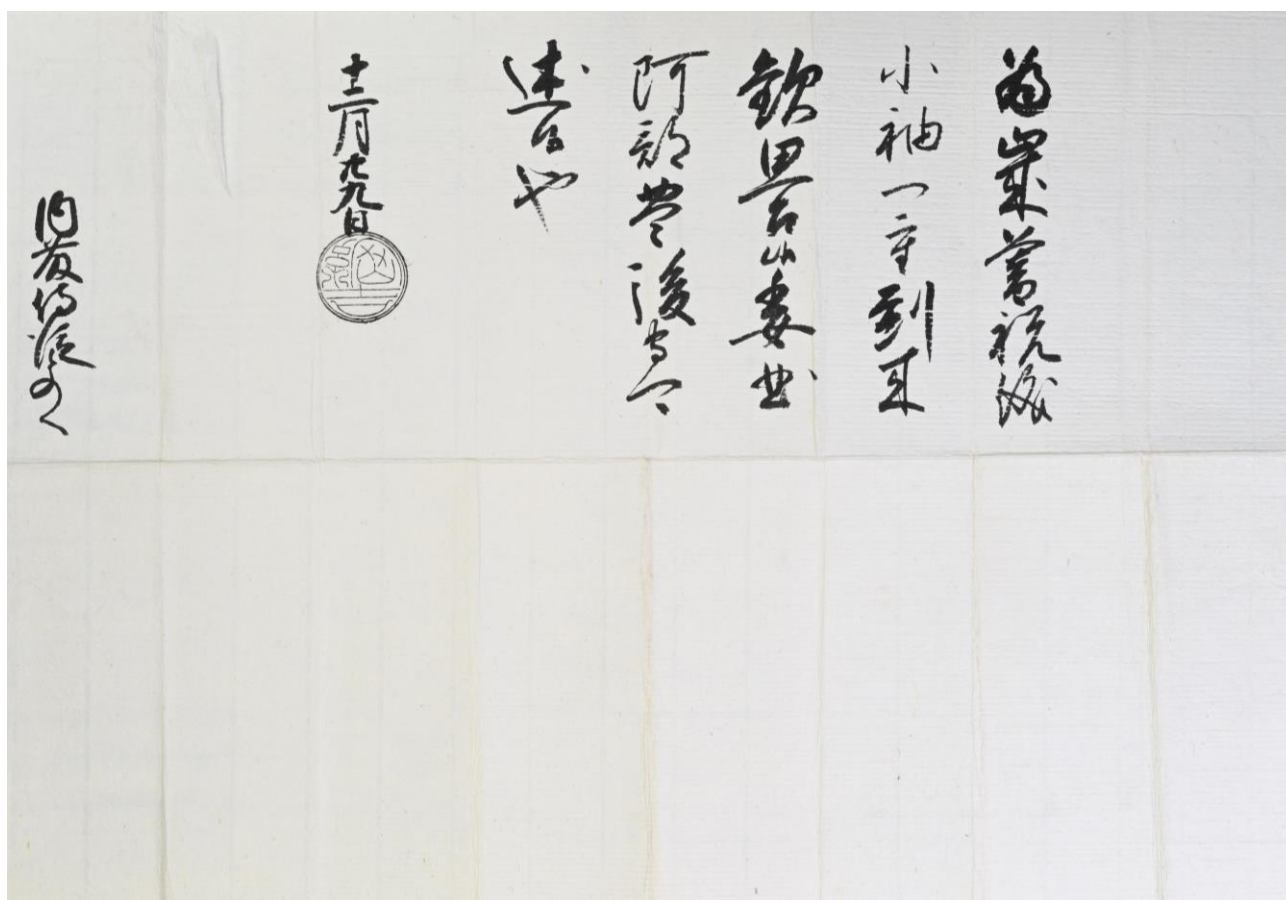 為歳暮祝儀
小袖一重到来
歓思召候委曲
阿部豊後守可
述候也
十二月廿九日
内藤侍従とのへ